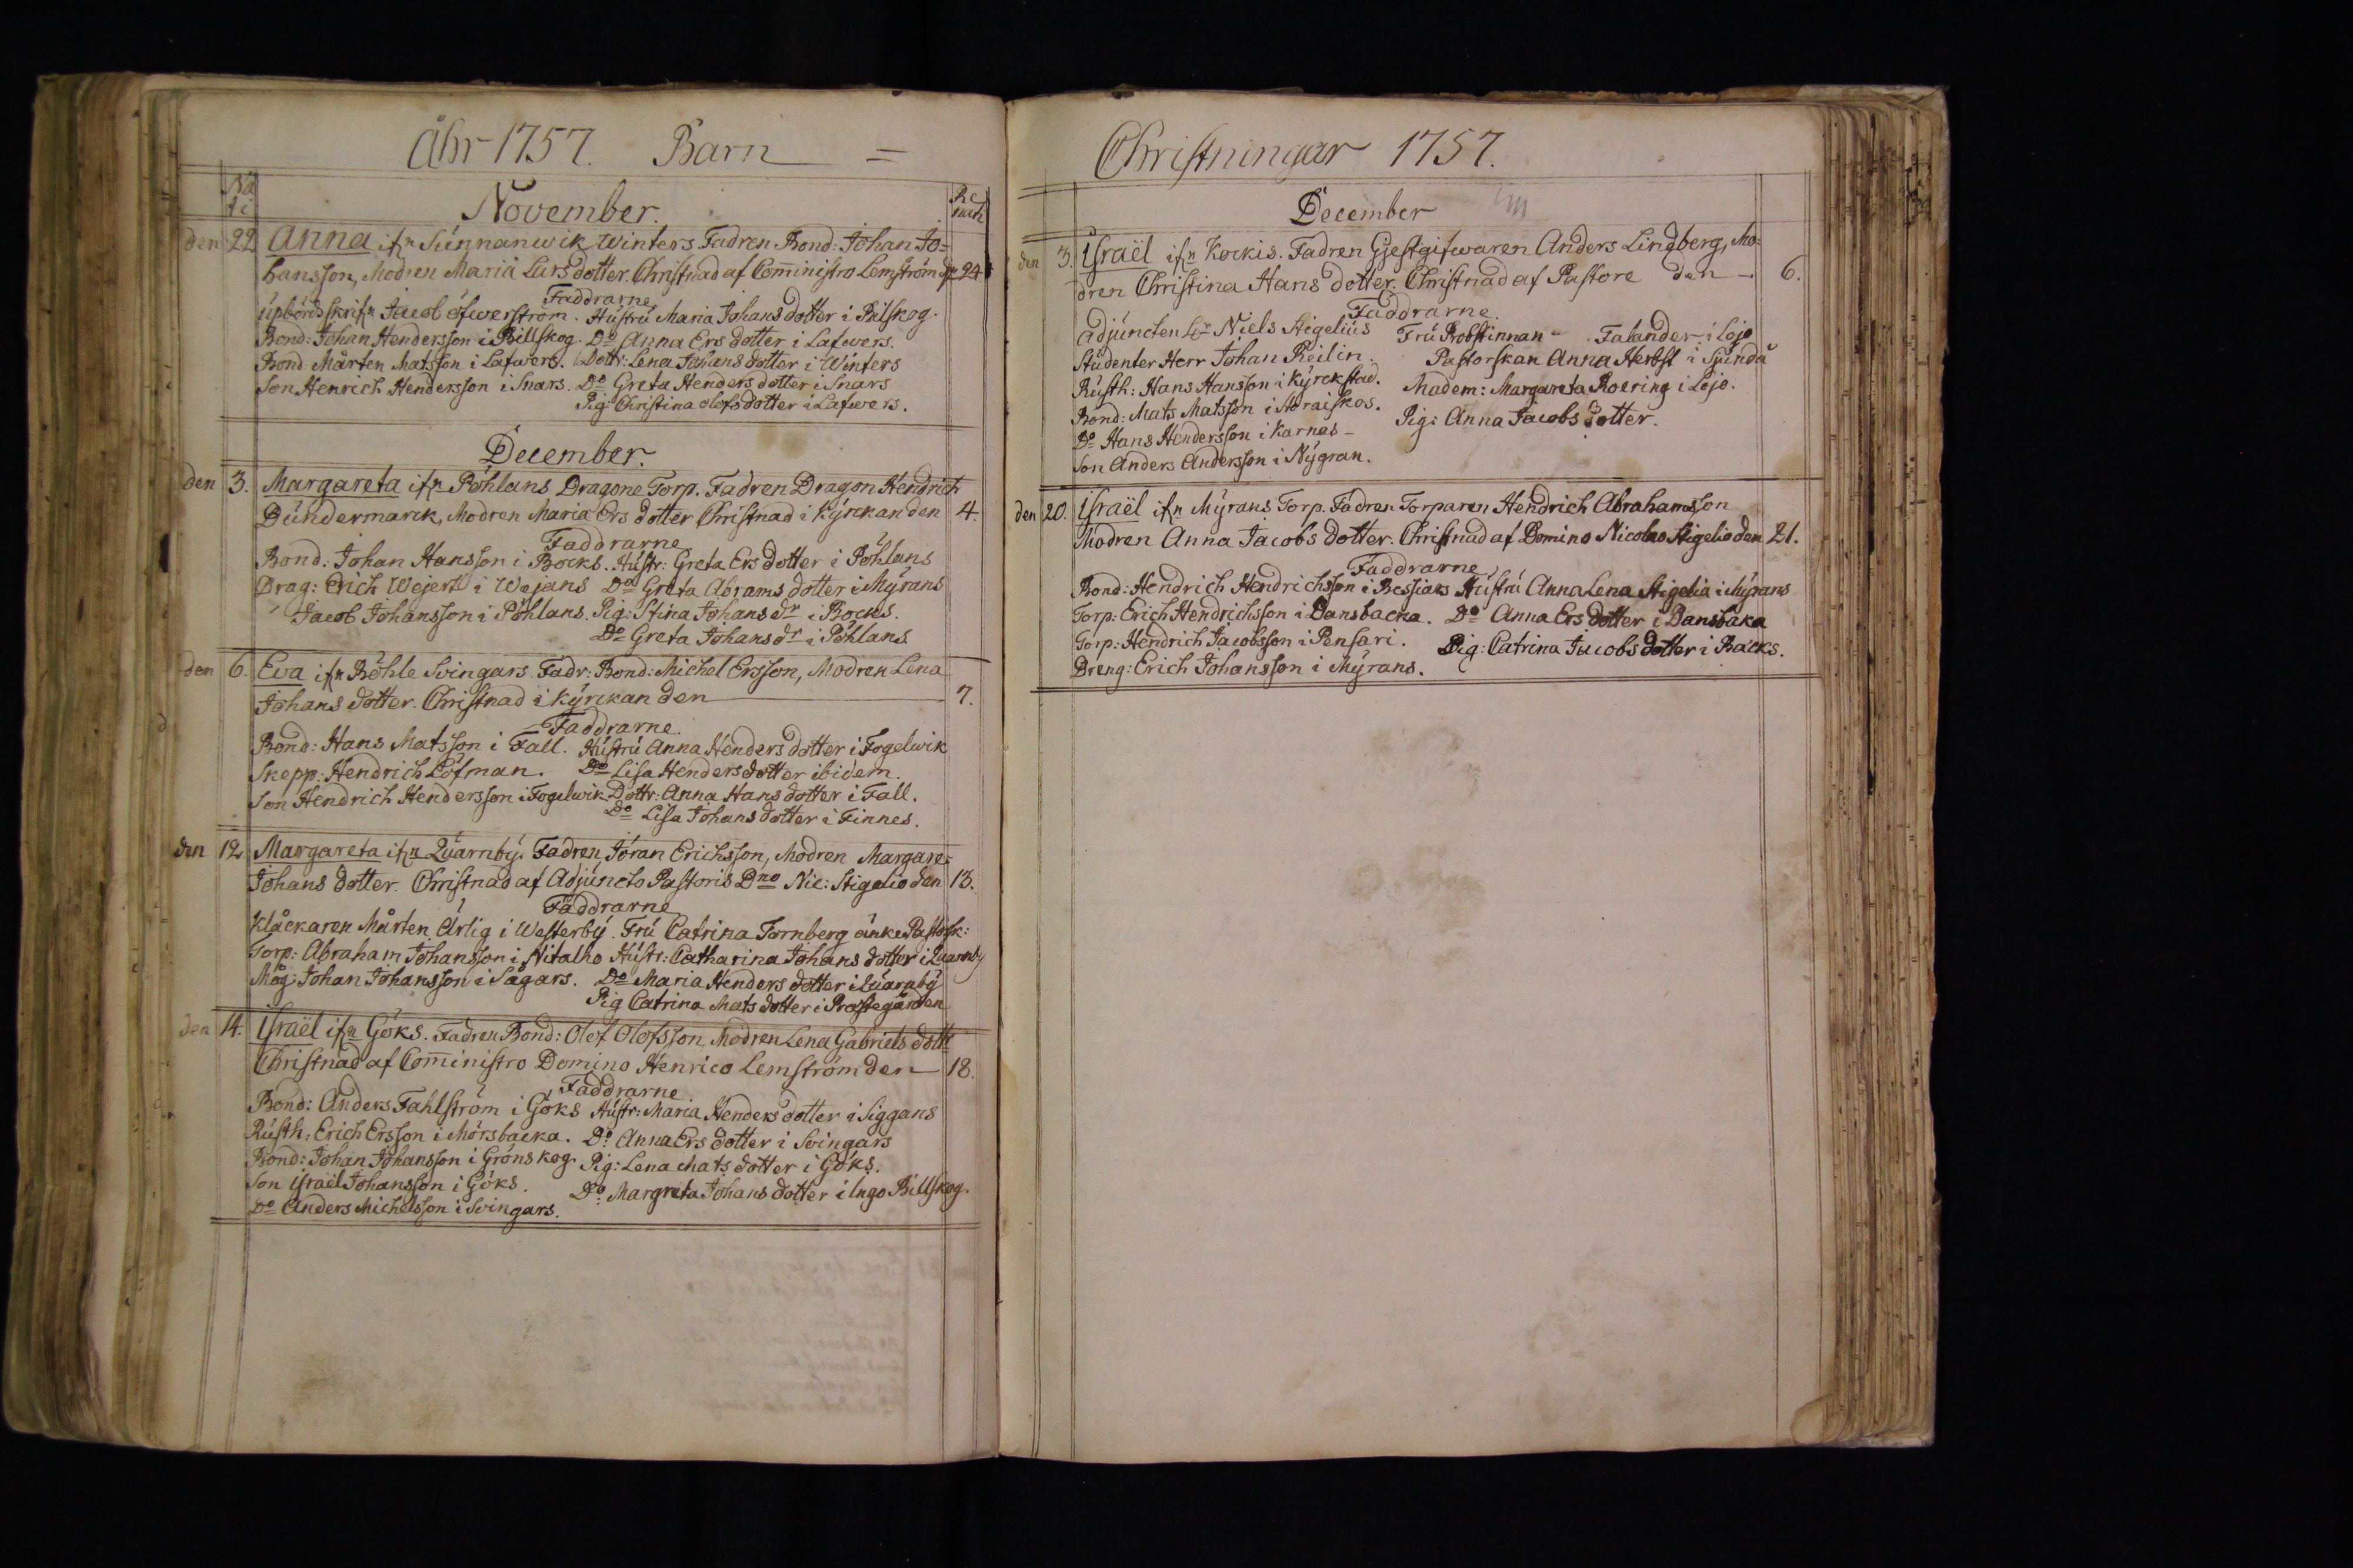 Åhr 1757. Barn =
Na
ti
Re
nati
November.
den 22 Anna ifrn Sünnanwik Winters. Fadren Bond: Johan Jo=
hansson, Modren Maria Lars dotter. Christnad af Com̄inistro Lemström dn 24
Faddrarne
üpbördsskrifn Jacob öfwerström. Hüstrü Maria Johans dotter i Pilskog.
Bond: Johan Hendersson i Billskog. Do Anna Ers dotter i Lafwers.
Bond. Mårten Matsson i Lafwers. Dottr: Lena Johans dotter i Winters
Son Henrich Hendersson i Snars. Do Greta Henders dotter i Snars
Pig: Christina olofs dotter i Lafwers.
December.
den 3. Margareta ifrn Pöhlans Dragone Torp. Fadren Dragon Hendrich
Dündermarck, Modren Maria Ers dotter Christnad i Kyrckan den 4.
Faddrarne
Bond: Johan Hansson i Bocks. Hüstr: Greta Ers dotter i Pöhlans
Drag: Erich Wejert i Wejans Do Greta Abrams dotter i Myrans
Jacob Johansson i Pöhlans. Pig: Stina Johans dr i Bocks.
Do Greta Johans dr i Pöhlans
den 6. Eva ifrn Böhle Svingars. Fadr: Bond: Michel Ersson, Modren Lena
Johans dotter. Christnad i Kyrckan den 7.
Faddrarne.
Bond: Hans Matsson i Fall. Hüstrü Anna Henders dotter i Fogelwik
Skepp: Hendrich Löfman. Do Lisa Henders dotter ibidem.
Son Hendrich Hendersson i Fogelwik. Dottr: Anna Hans dotter i Fall.
Do Lisa Johans dotter i Finnes.
den 12 Margareta ifrn Qüarnby. Fadren Jöran Erichsson, Modren Margare:
Johans dotter. Christnad af Adjüncto Pastoris Dno Nic: Stigelio den 13.
Faddrarne
Klåckaren Mårten Ärlig i Westerby. Frü Catrina Tornberg änke Pastorsk:
Torp: Abraham Johansson i Nitalho Hüstr: Catharina Johans dotter i Quarnby
Måg: Johan Johansson i Sågars. Do Maria Henders dotter i Qüarnby
Pig Catrina Mats dotter i Prästegården
den 14. Israël ifrn Göks. Fadren Bond: Olof Olofsson, Modren Lena Gabriels dottr
Christnad af Com̄inistro Domino Henrico Lemström den 18.
Faddrarne.
Bond: Anders Fahlström i Göks Hüstr: Maria Henders dotter i Siggans
Rüsth: Erich Ersson i Mörsbacka. Do Anna Ers dotter i Svingars
Bond: Johan Johansson i Grönskog. Pig: Lena Mats dotter i Göks.
Son israël Johansson i Göks. Do: Margreta Johans dotter i Ingo Billskog.
Do Anders Michelsson i Svingars.
Christningar 1757.
December
den 3. Israël ifrn Kockis. Fadren Gjestgifwaren Anders Lindberg, Mo=
dren Christina Hans dotter. Christnad af Pastore den 6.
Faddrarne.
Adjüncten Hr Niels Stigeliüs Frü Probstinnan Falander i Lojo
Stüdenter Herr Johan Reilin. Pastorskan Anna Herbst i Sjündå
Rüsth: Hans Hansson i Kyrckstad. Madem: Margareta Roering i Lojo.
Bond: Mats Matsson i Storaiskos. Pig: Anna Jacobs dotter.
Do Hans Hendersson i Karnas
Son Anders Andersson i Nygran.
den 20. Israël ifrn Myrans Torp. Fadren Torparen Hendrich Abrahamsson
Modren Anna Jacobs dotter. Christnad af Domino Nicolao Stigelio den 21.
Faddrarne
Bond: Hendrich Hendrichsson i Bessiars Hüstrü Anna Lena Stigelia i Myrans
Torp: Erich Hendrichsson i Dansbacka. Do Anna Ers dotter i Dansbaka
Torp: Hendrich Jacobsson i Pensari. Pig: Catrina Jacobs dotter i Backs.
Dreng: Erich Johansson i Myrans.